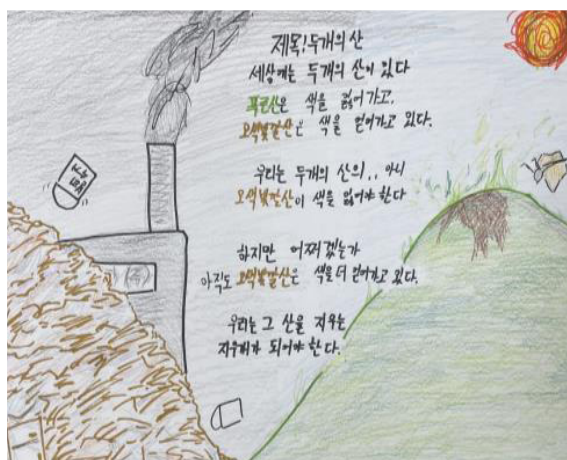 제목! 두개의 산
세상에는 두개의 산이 있다
푸른산은 색을 잃어가고,
오색빛깔산은 색을 얻어가고 있다.
우리는 두개의 산의.. 아니
오색빛깔산이 색을 잃어야 한다
하지만 어쩌겠는가
아직도 오색빛깔산은 색을 더 얻어가고 있다.
우리는 그 산을 지우는
지우개가 되어야 한다.